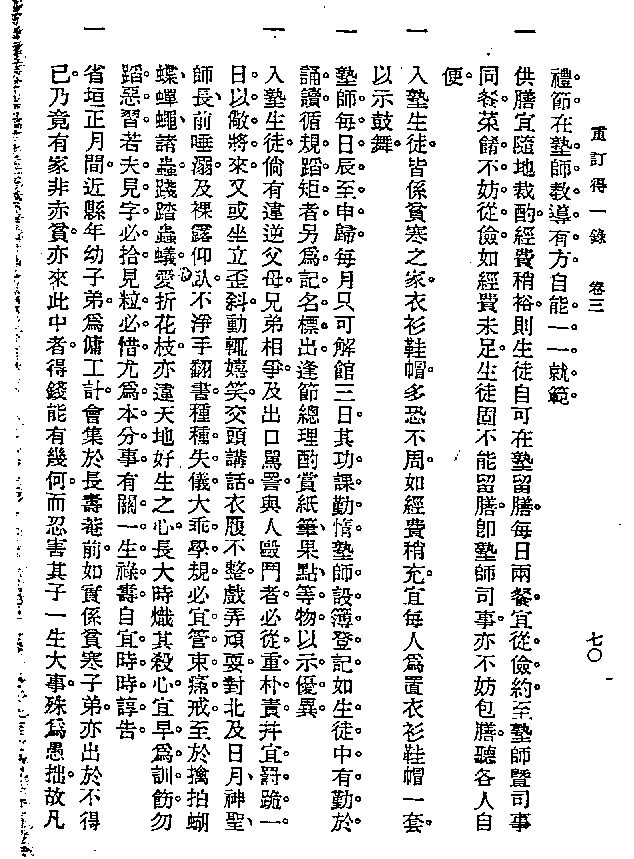 重訂得一錄 卷三 七〇
禮節在塾師教導有方自能一一就範。
一 供膳宜隨地裁酌。經費稍裕則生徒自可在塾留膳。每日兩餐。宜從儉約。至塾師暨司事
同餐菜餚不妨從儉如經費未足。生徒固不能留膳。卽塾師司事。亦不妨包膳。聽各人自
便。
一 入塾生徒。皆係貧寒之家。衣衫鞋帽。多恐不周。如經費稍充。宜每人爲置衣衫鞋帽一套。
以示鼓舞。
一 塾師每日辰至申歸每月只可解館三日其功課勤惰塾師設簿登記如生徒中有勤於
誦讀循規蹈矩者另爲記名標出。逢節總理酌賞紙筆果點等物以示優異
一 入塾生徒。倘有違逆父母兄弟相爭及出口罵詈與人毆鬥者必從重朴責幷宜罸跪一
日。以儆將來又或坐立歪斜動輒嬉笑交頭講話衣履不整戲弄頑耍對北及日月神聖、
師長前唾溺及裸露仰臥不淨手翻書種種失儀大乖學規必宜管束痛戒至於擒拍蝴
蝶蟬蠅諸蟲踐踏蟲蟻愛折花枝亦違天地好生之心。長大時熾其殺心。宜早爲訓飭。勿
蹈惡習。若夫見字必拾。見粒必惜。尤爲本分事。有關一生祿壽。自宜時時諄告。
一 省垣正月間。近縣年幼子弟。爲傭工計。會集於長壽菴前。如實係貧寒子弟。亦出於不得
已。乃竟有家非赤貧。亦來此中者。得錢能有幾何。而忍害其子一生大事。殊爲愚拙。故凡